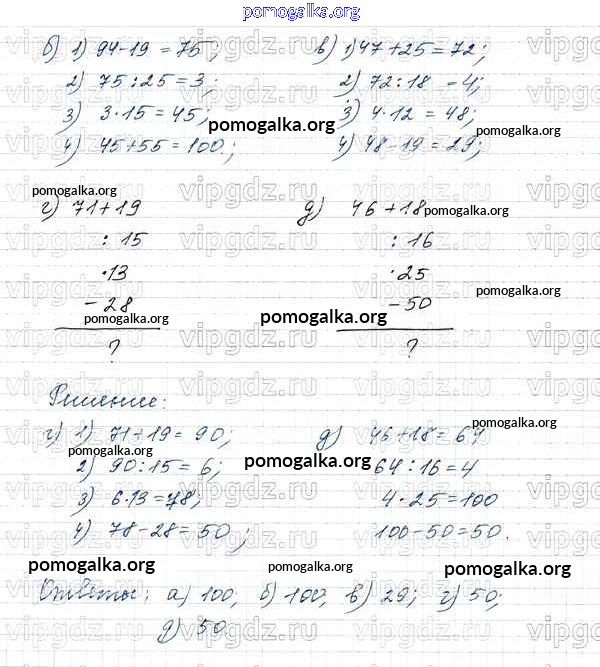 pomogalka.org
б) 1) 94-19 = 75; в) 1) 47+25 = 72;
2) 75:25 = 3; 2) 72:18 - 4;
3) 3·15 = 45; 3) 4·12 = 48;
pomogalka.org pomogalka.org
4) 45+55 = 100.; 4) 48-19 = 29;
pomogalka.org
г) 71+19 д) 46+18 pomogalka.org
: 15 : 16
·13 ·25
pomogalka.org
- 28 - 50
pomogalka.org pomogalka.org
? ?
Решение:
г) 1) 71+19 = 90; д) 46+18 = 64
pomogalka.org
2) 90:15 = 6; 64:16 = 4
pomogalka.org pomogalka.org
3) 6·13 = 78; 4·25 = 100
4) 78-28 = 50; 100-50 = 50.
pomogalka.org pomogalka.org pomogalka.org
Ответы: а) 100; б) 100, в) 29; г) 50;
д) 50
vipgdz.ru